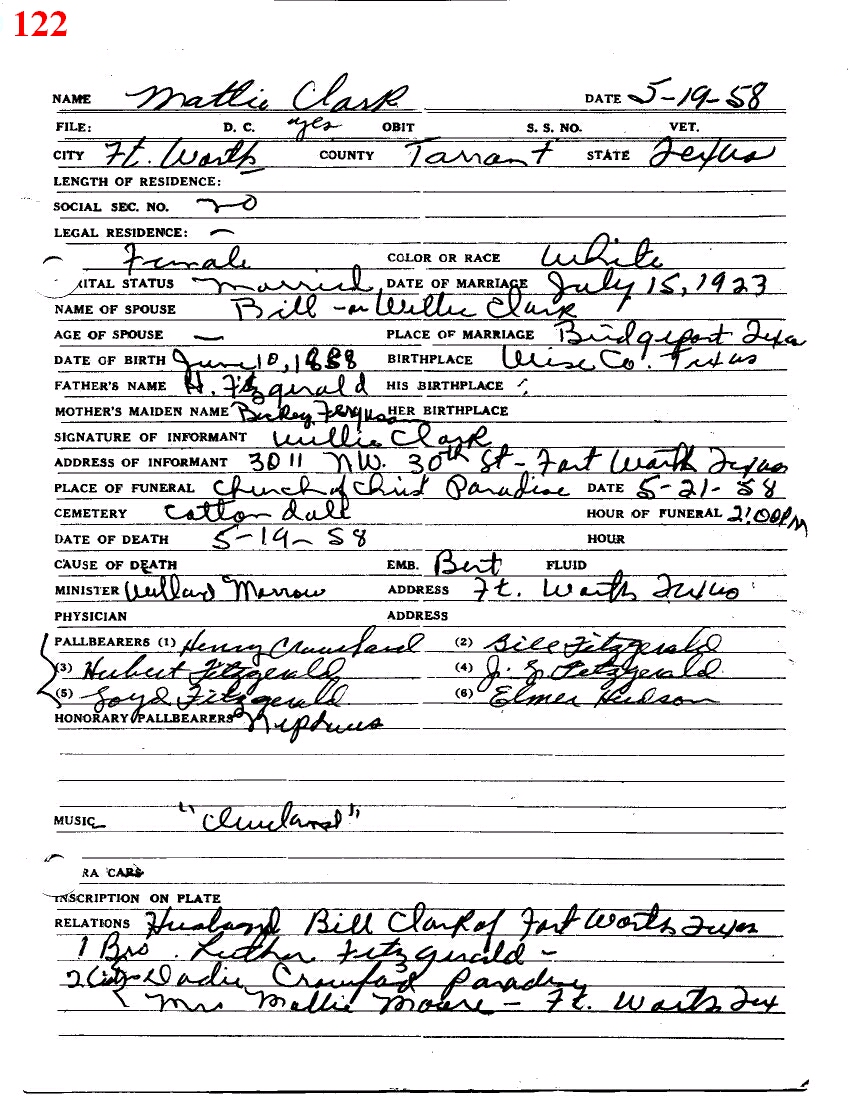 122
NAME Mattie Clark DATE 5-19-58
FILE: D. C. yes OBIT S. S. NO. VET.
CITY Ft. Worth COUNTY Tarrant STATE Texas
LENGTH OF RESIDENCE:
SOCIAL SEC. NO. no
LEGAL RESIDENCE: —
Female COLOR OR RACE White
RITAL STATUS married DATE OF MARRIAGE July 15, 1923
NAME OF SPOUSE Bill - or Willie Clark
AGE OF SPOUSE — PLACE OF MARRIAGE Bridgeport Texas
DATE OF BIRTH June 10, 1888 BIRTHPLACE Wise Co. Texas
FATHER'S NAME H. Fitzgerald HIS BIRTHPLACE
MOTHER'S MAIDEN NAME Ferguson HER BIRTHPLACE
SIGNATURE OF INFORMANT Willie Clark
ADDRESS OF INFORMANT 3011 NW. 30th St - Fort Worth Texas
PLACE OF FUNERAL Church of Christ Paradise DATE 5-21-58
CEMETERY Cottondale HOUR OF FUNERAL 2:00 PM
DATE OF DEATH 5-19-58 HOUR
CAUSE OF DEATH EMB. Bert FLUID
MINISTER Willard Morrow ADDRESS Ft. Worth Texas
PHYSICIAN ADDRESS
PALLBEARERS (1) Henry Crawford (2) Bill Fitzgerald
(3) Hubert Fitzgerald (4) J. Fitzgerald
(5) Loyd Fitzgerald (6) Elmer Hudson
HONORARY PALLBEARERS Nephews
MUSIC "Cleveland"
RA CARS
INSCRIPTION ON PLATE
RELATIONS Husband Bill Clark of Fort Worth Texas
1 Bro. Luther Fitzgerald -
2 Crawford Paradise
Mrs Mollie Moore - Ft. Worth Tex